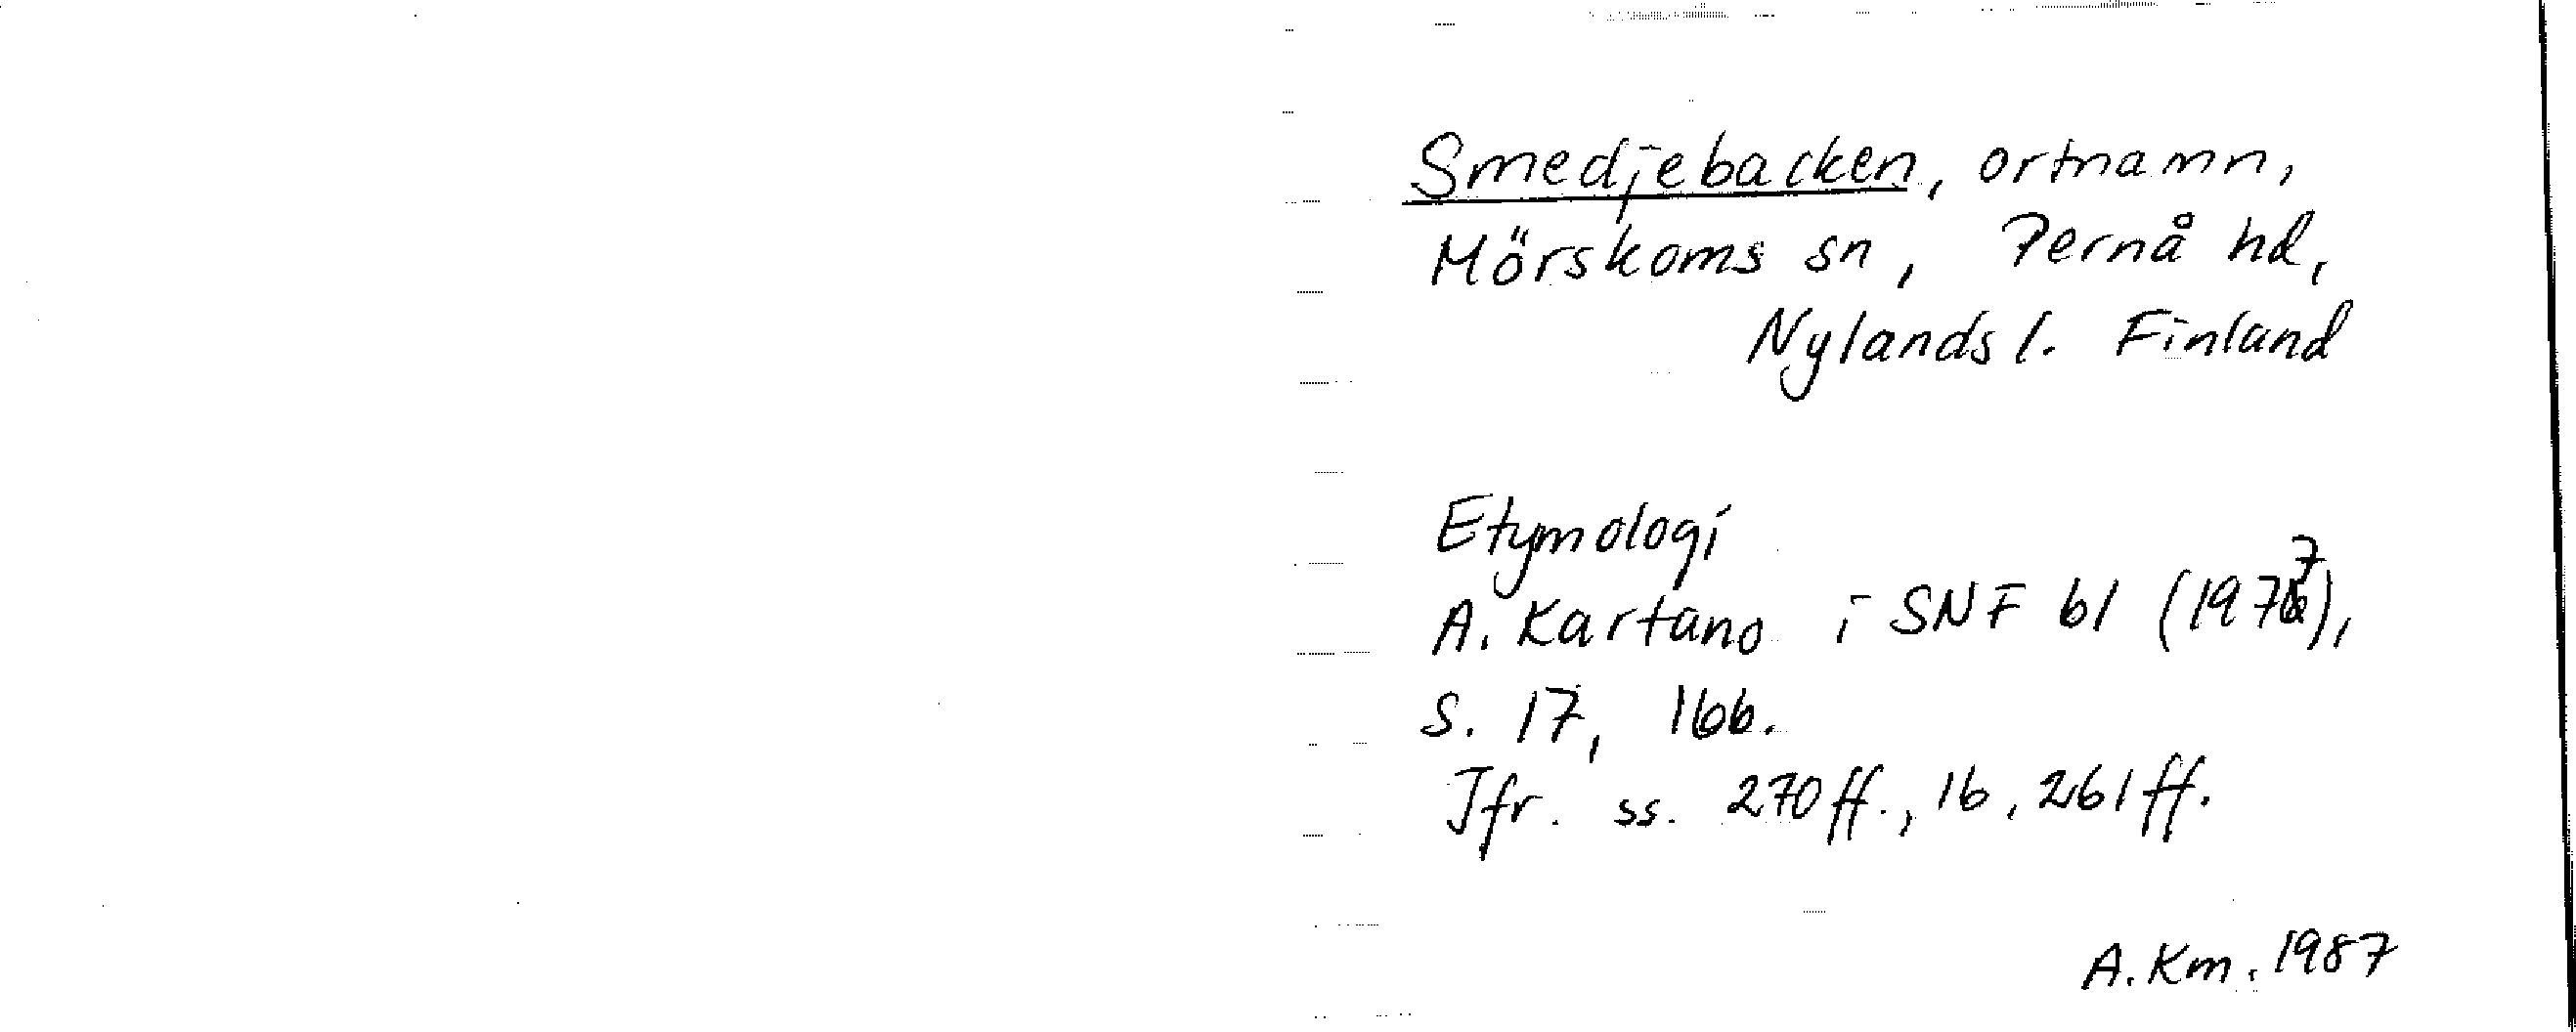 Smedjebacken, ortnamn,
Mörskoms sn, Pernå hd,
Nylands l. Finland
Etymologi
A. Kartano i SNF 61 (1977),
s. 17, 166.
Jfr. ss. 270ff., 16, 261ff.
A.Km. 1987